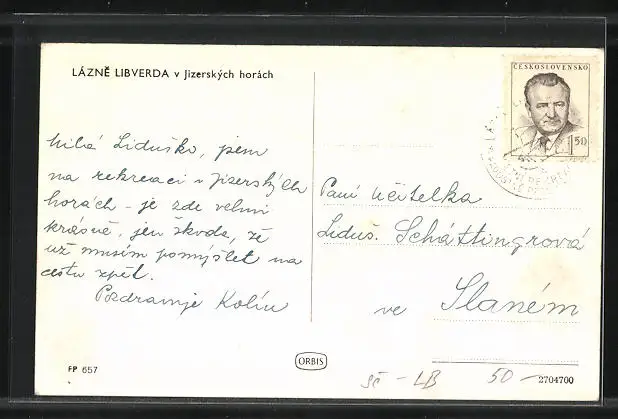 LÁZNĚ LIBVERDA v Jizerských horách
ČESKOSLOVENSKO
1 50
Milá Liduško, jsem
na rekreaci v Jizerských
horách - je zde velmi
krásně, jen škoda, že
už musím pomýšlet na
cestu zpět.
Pozdravuje Kolín
Paní učitelka
Liduš. Schättingrová
ve Slaném
FP 657
ORBIS
SČ - LB 50 -
2704700